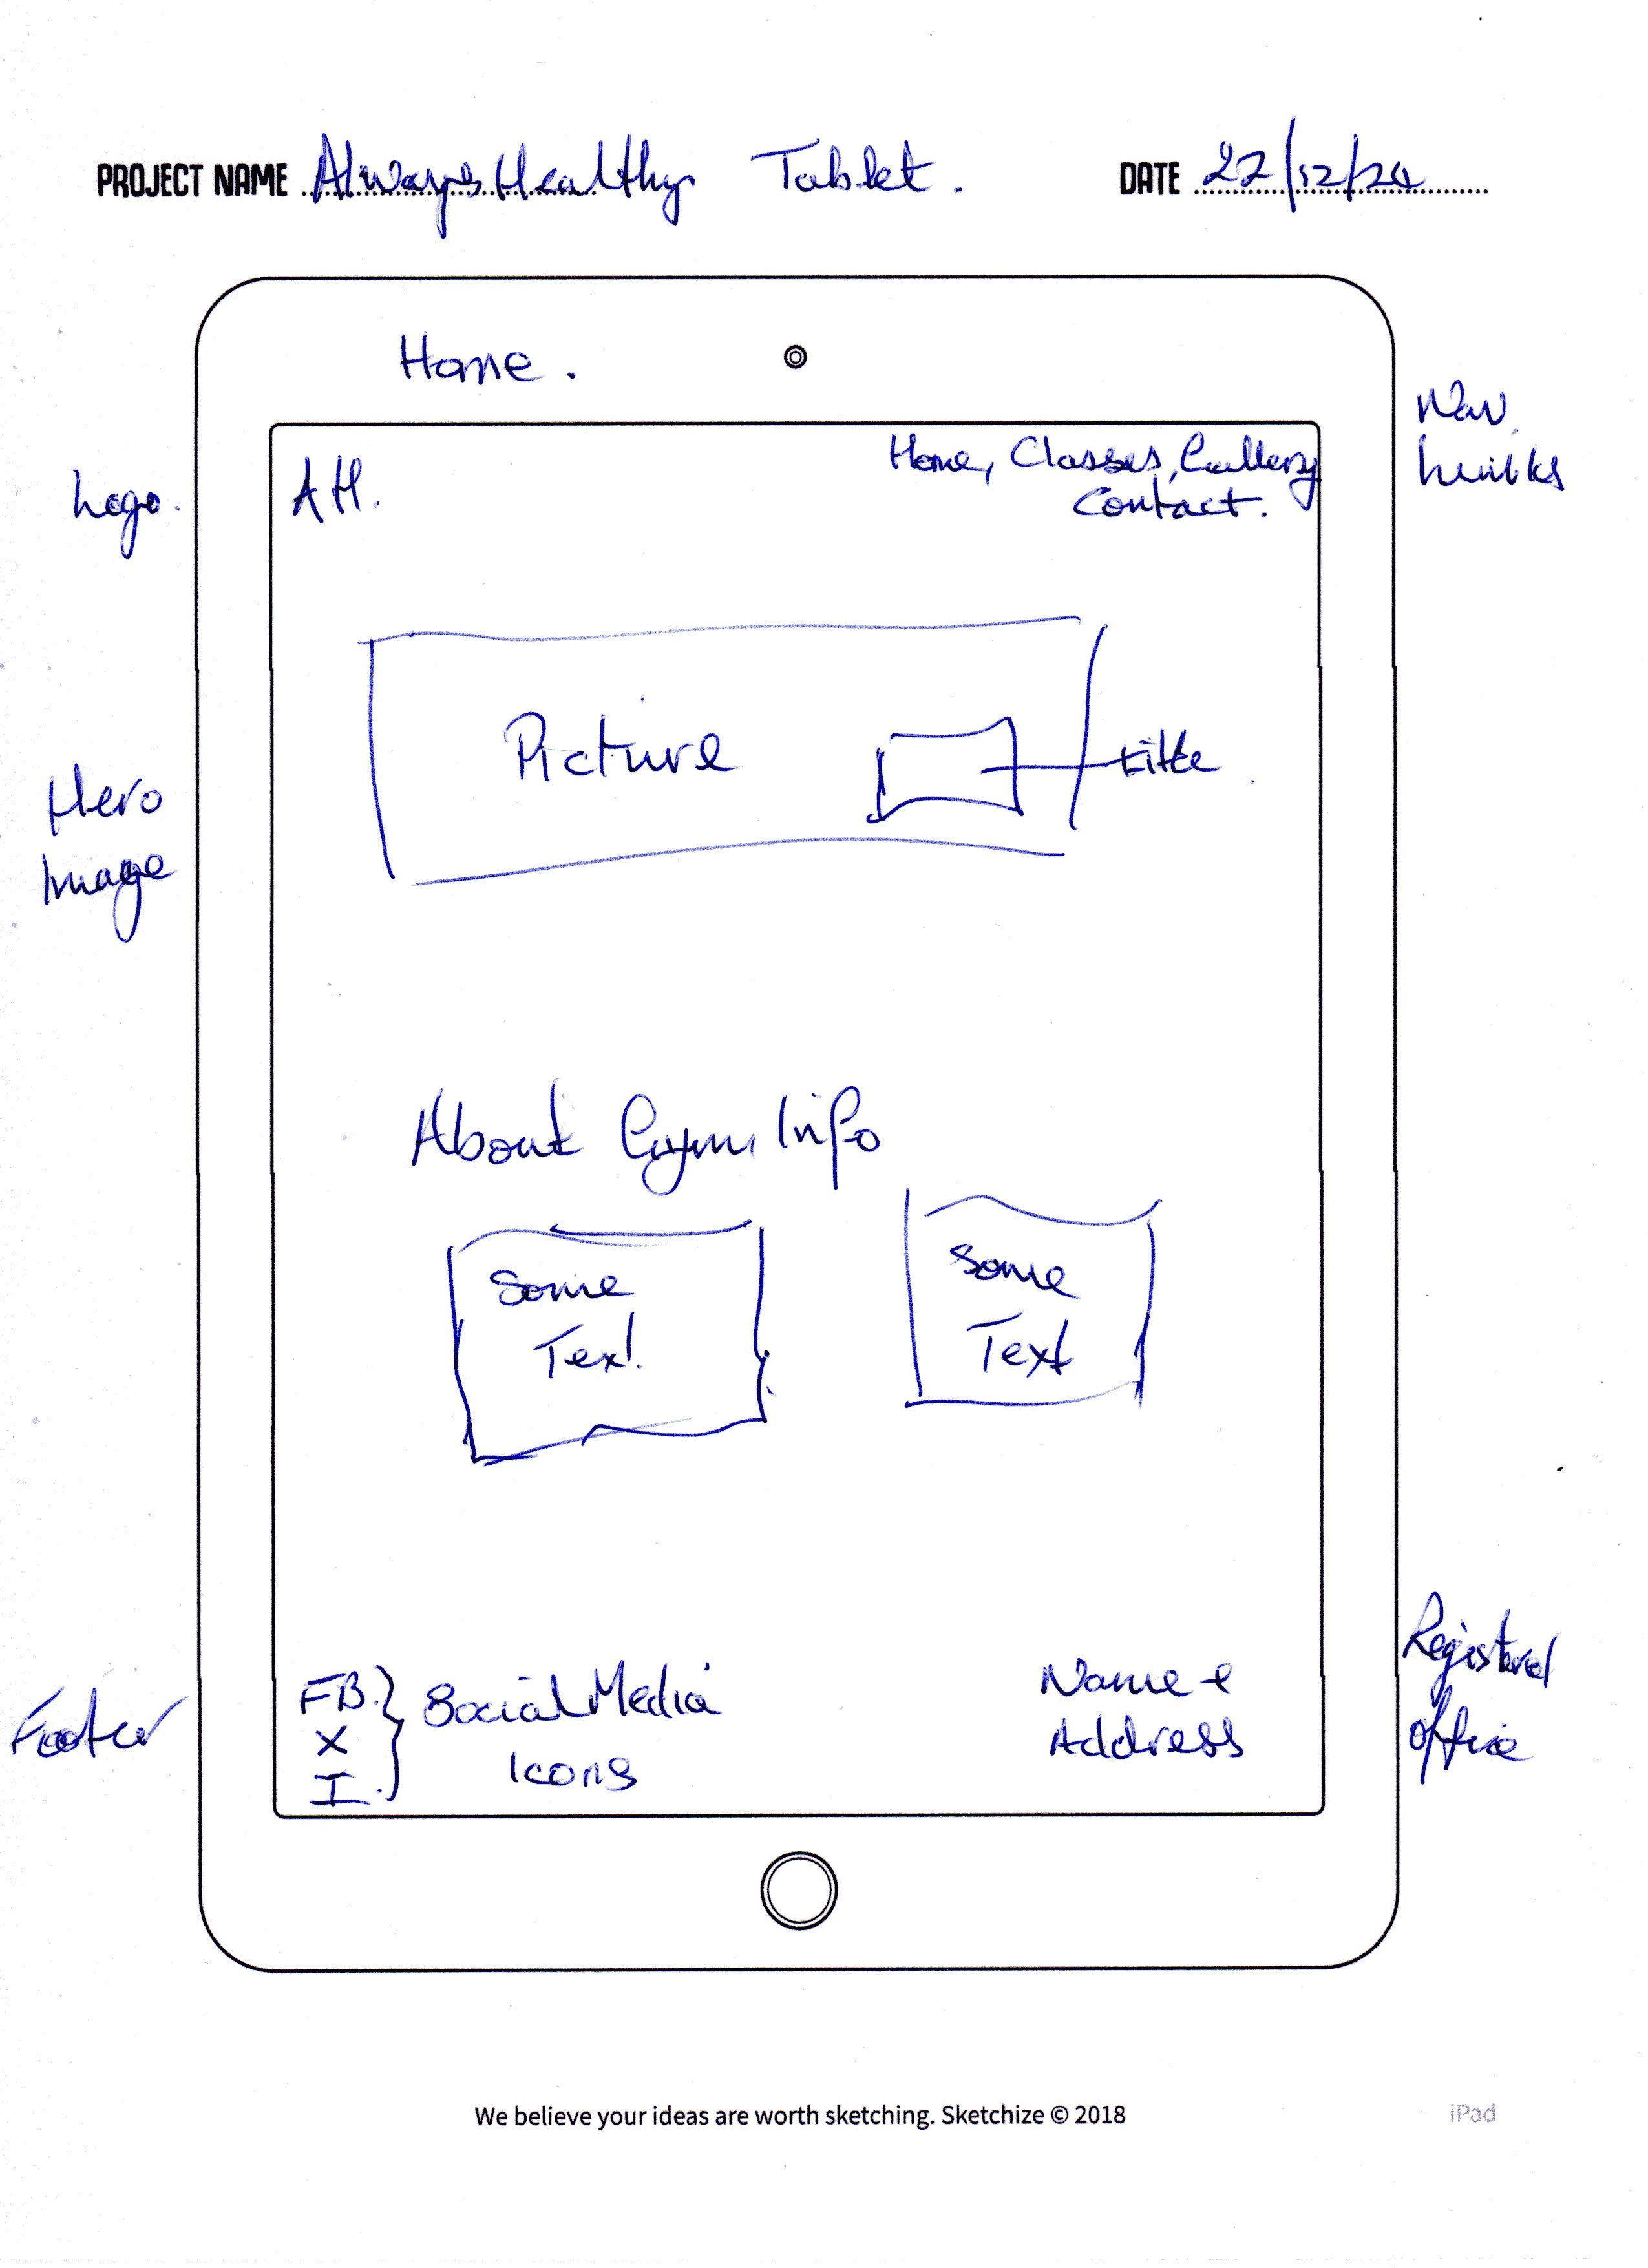 PROJECT NAME Always Healthy Tablet. DATE 22/12/24
Home.
Nav
Links
Logo.
AH.
Home, Classes, Gallery
Contact.
Picture
title
Hero
Image
About Gym Info
Some
Text
Some
Text
Footer
FB.
X
I.
Social Media
Icons
Name +
Address
Registered
office
We believe your ideas are worth sketching. Sketchize © 2018
iPad